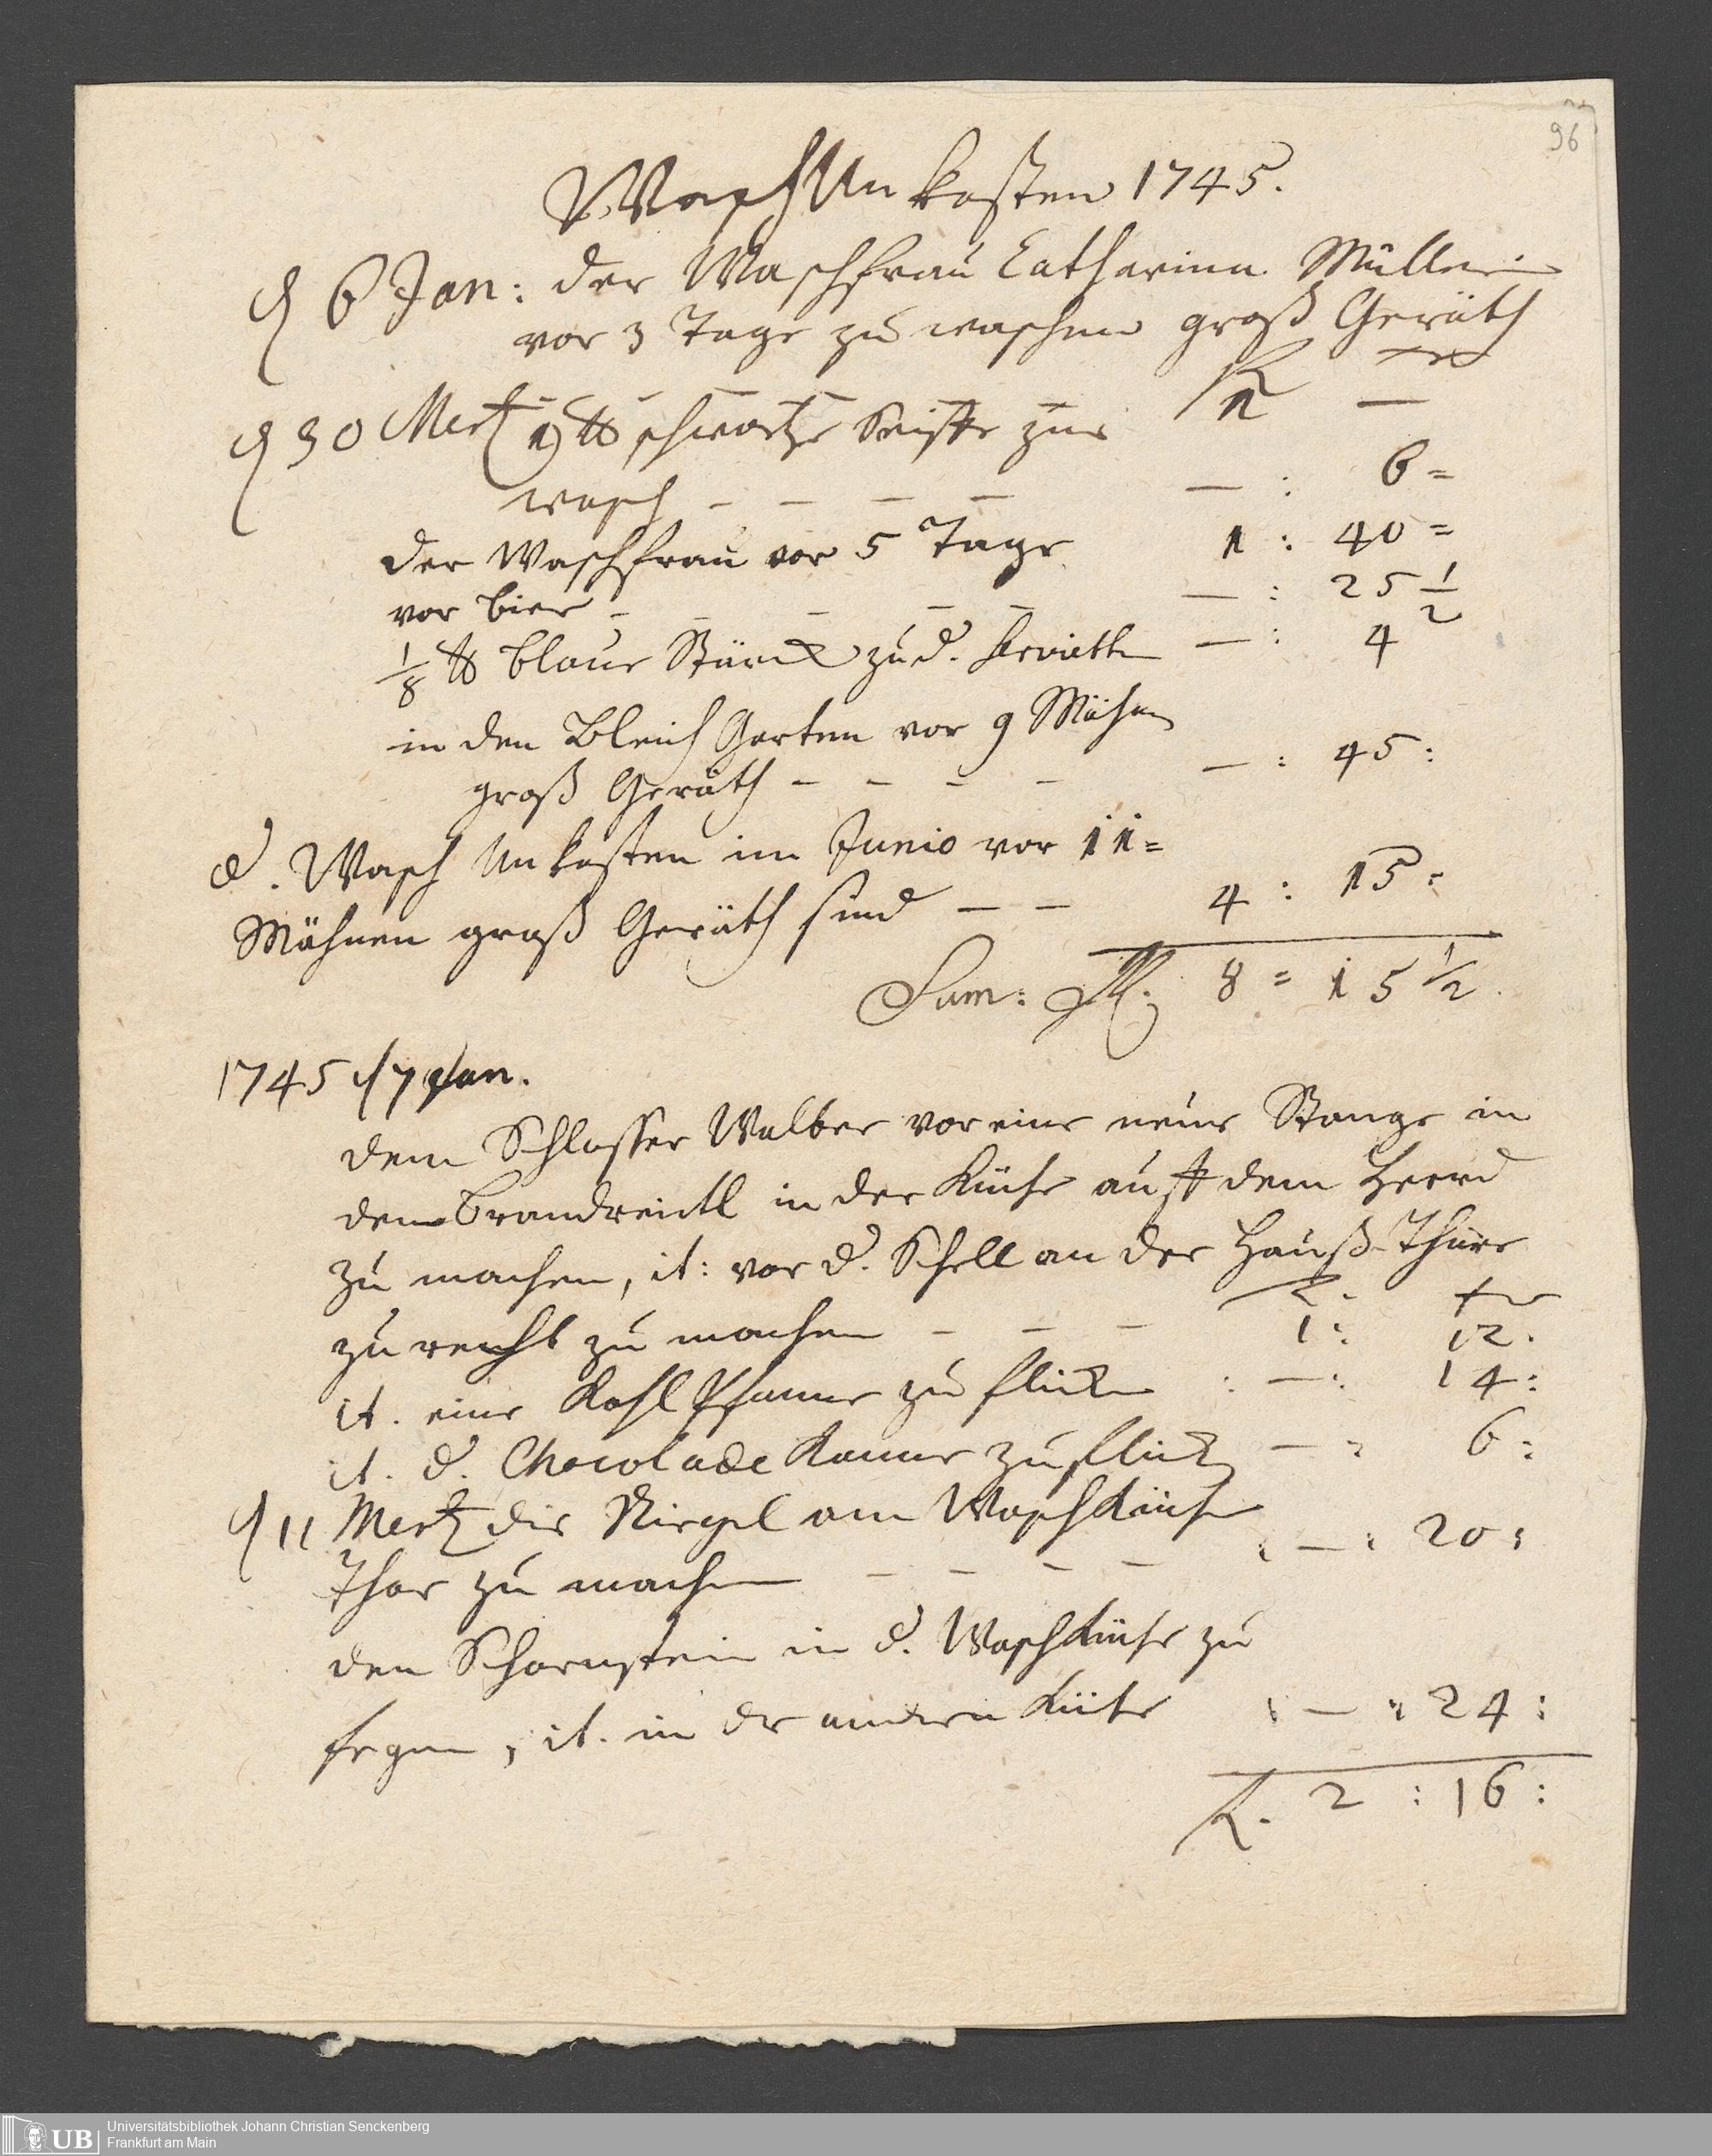 96
Wasch Unkosten 1745.
d 6 Jan: der Waschfrau Catharina Müllerin
vor 3 Tage zu waschen groß Geräth
fl xr
– – – – – 1 —
d 30 Mertz 1 ℔ schwartze Seiffe zur
wasch – – – – — : 6 =
der Waschfrau vor 5 Tage 1 : 40 =
vor bier – – – – – — : 25 1/2
1/8 ℔ blaue Stärck zu d. Serviett — : 4
in den Bleich Garten vor 9 Mahnen
groß Geräth – – – – — : 45 :
d. Wasch Unkosten im Junio vor 11 =
Mahnen groß Geräth sind – – 4 : 15 :
Sum: fl. 8 = 15 1/2.
1745 d 7 Jan.
dem Schlosser Walber vor eine neue Stange in
dem Brandreitl in der Küche auff dem Heerd
zu machen, it: vor d. Schell an der Hauß-Thüre
fl. xr
zu recht zu machen – – – 1 : 12.
it. eine Kohl Pfanne zu flicken : — : 14 :
it. d. Chocolade Kanne zu flicken — : 6 :
d 11 Mertz die Riegel am Wasch Küchen
Thor zu machen – – – – : — : 20 :
den Schornstein in d. Wasch Küche zu
fegen, it. in der andern Küche : — : 24 :
fl. 2 : 16 :
UB Universitätsbibliothek Johann Christian Senckenberg
Frankfurt am Main